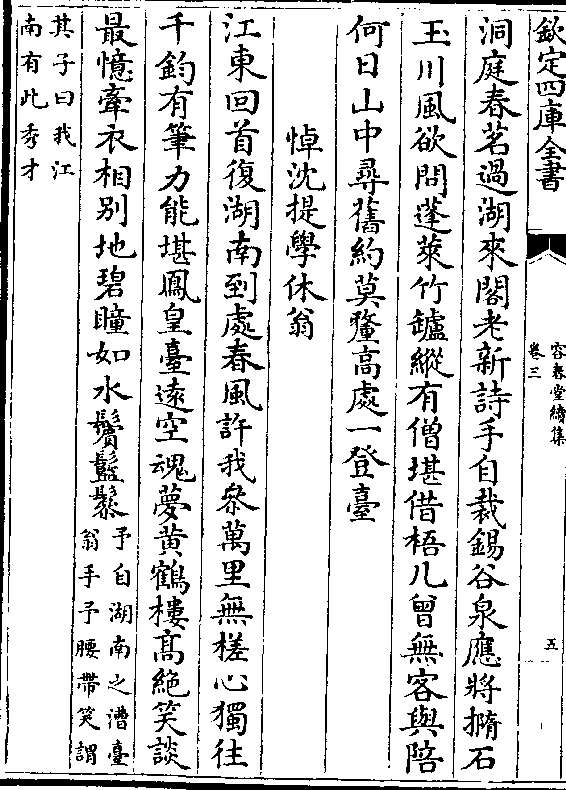 欽定四庫全書
容春堂續集
卷三
五
洞庭春茗過湖來閣老新詩手自裁錫谷泉應將撱石
玉川風欲問蓬萊竹鑪縱有僧堪借梧几曾無客與陪
何日山中尋舊約莫釐高處一登臺
悼沈提學休翁
江東回首復湖南到處春風許我叅萬里無槎心獨往
千鈞有筆力能堪鳳皇臺遠空魂夢黃鶴樓髙絶笑談
最憶牽衣相别地碧瞳如水鬢䰐鬖
予自湖南之漕臺
翁手予腰帶笑謂
其子曰我江
南有此秀才